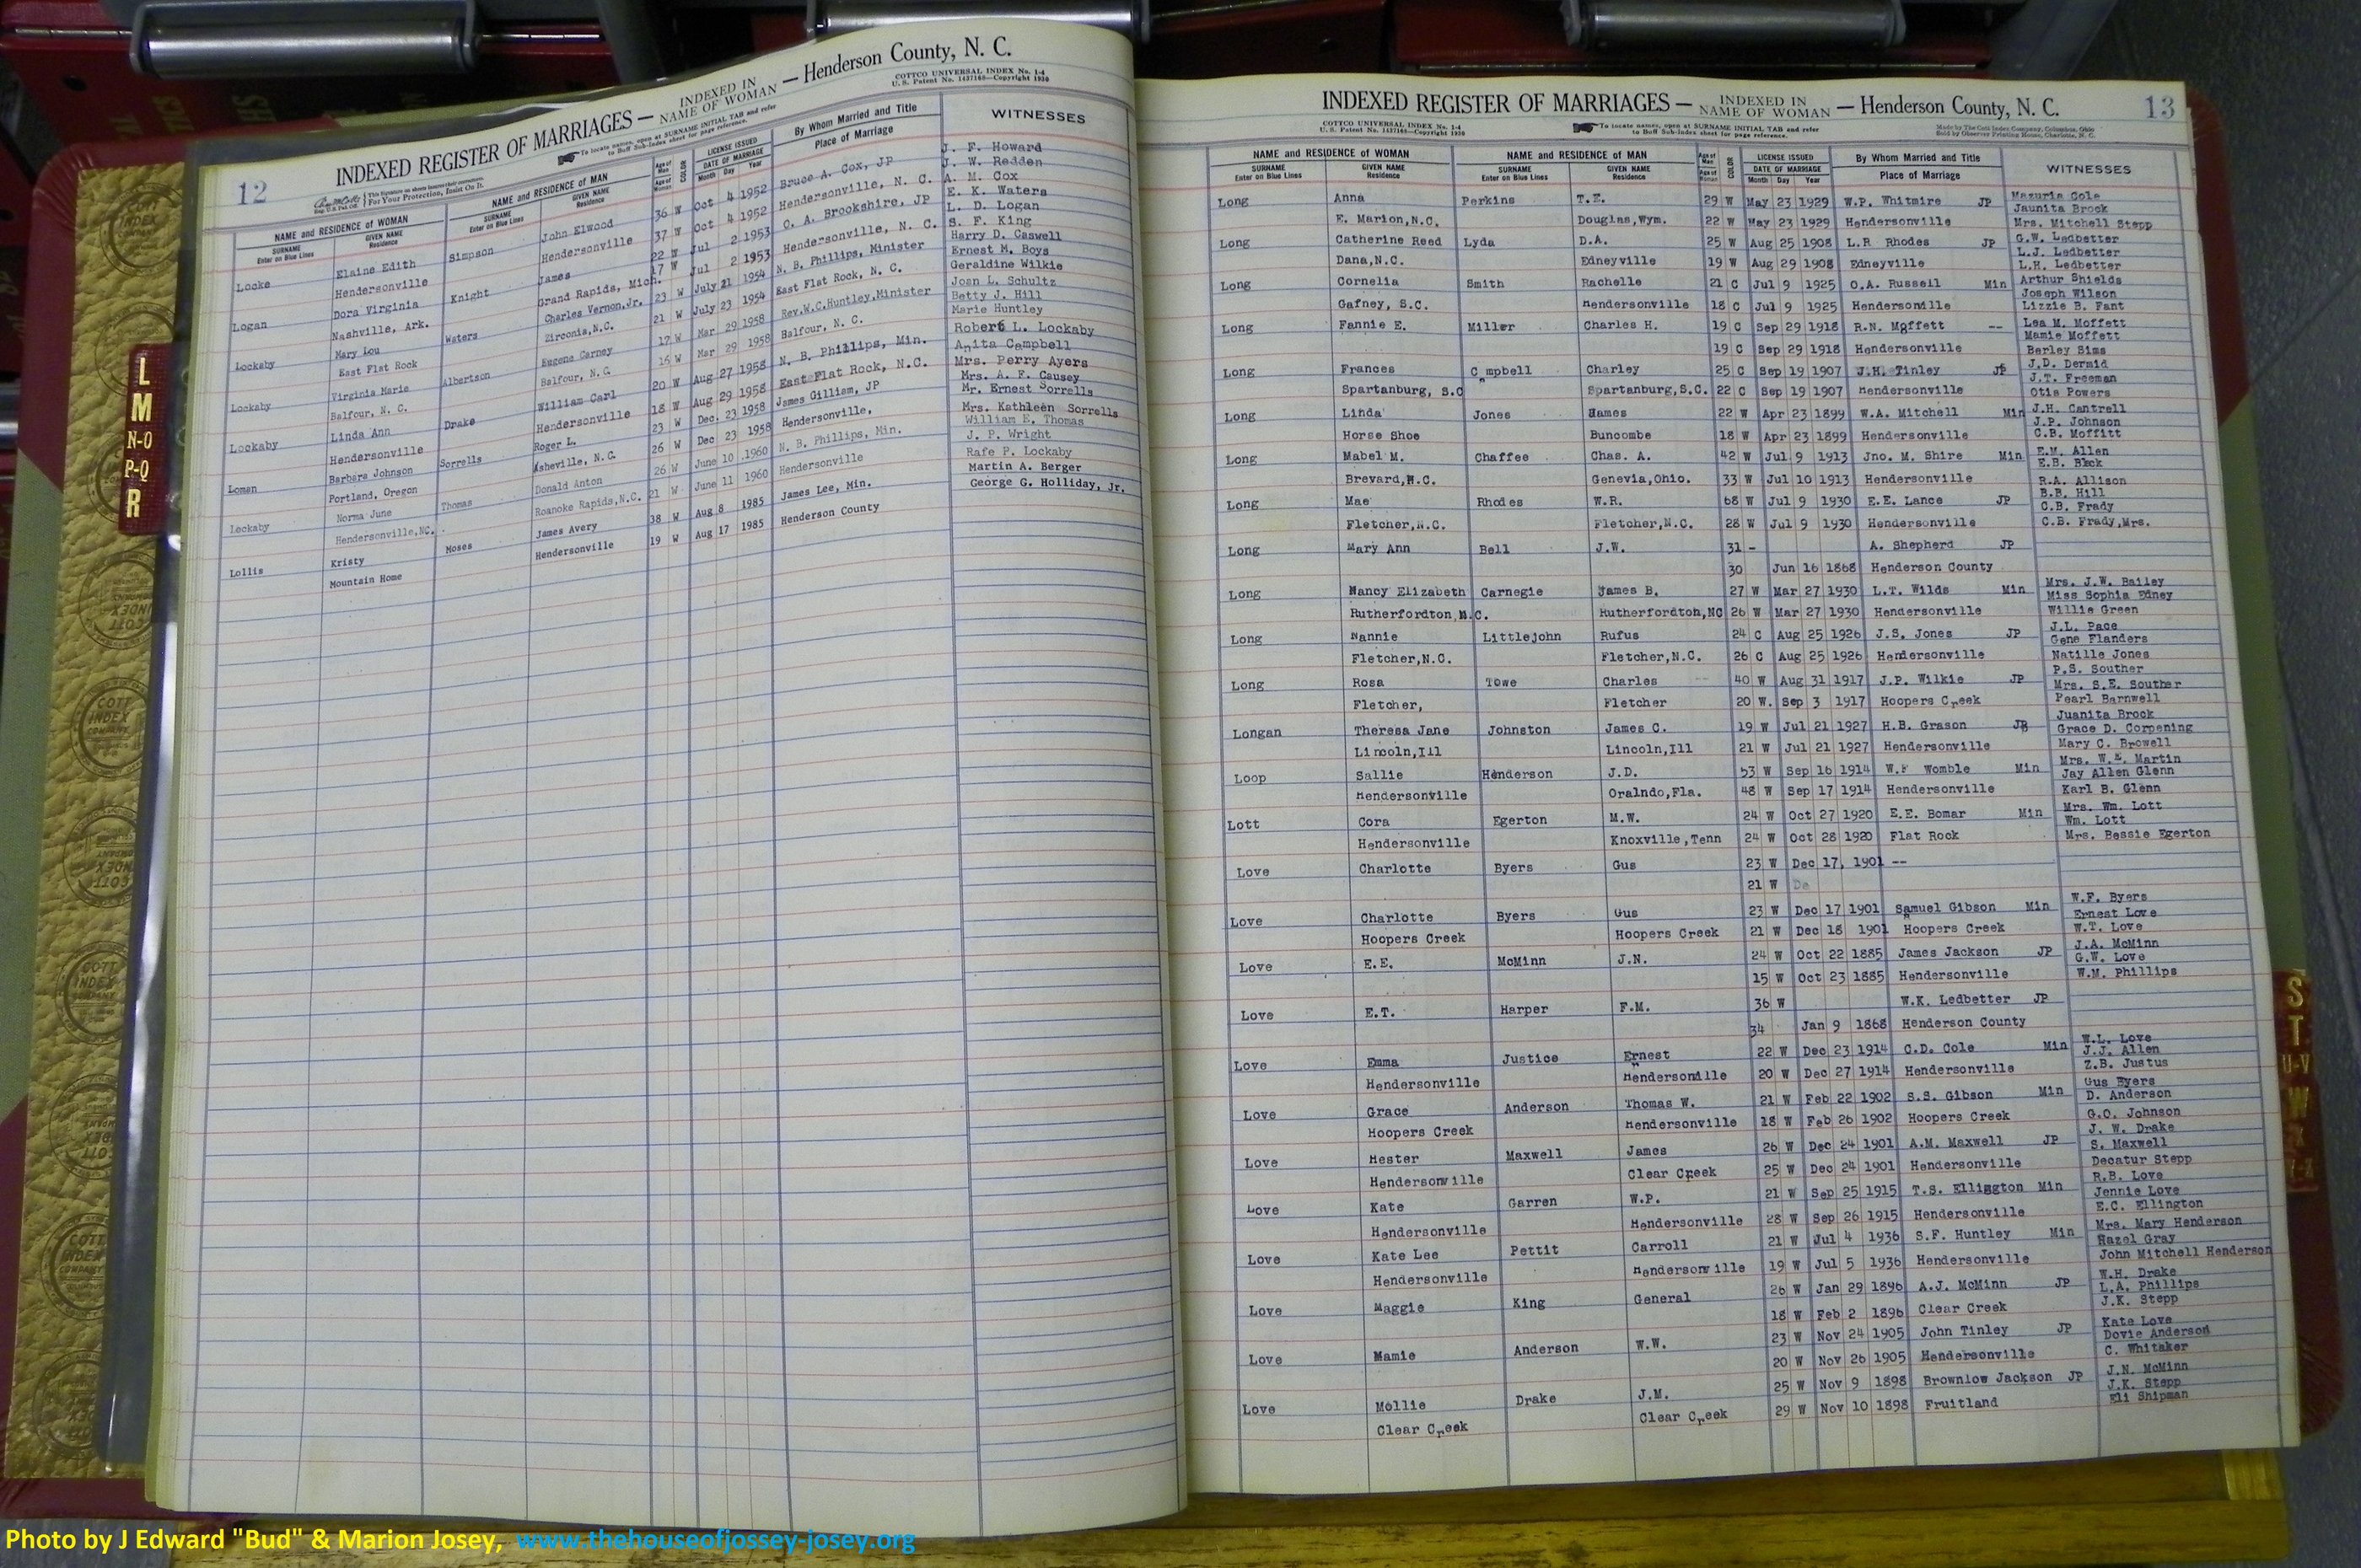 12
INDEXED REGISTER OF MARRIAGES — INDEXED IN NAME OF WOMAN — Henderson County, N. C.
COTTCO UNIVERSAL INDEX No. 1-4
U. S. Patent No. 1437168—Copyright 1930
To locate names, open at SURNAME INITIAL TAB and refer
to Buff Sub-Index sheet for page reference.
For Your Protection, Insist On It.
NAME and RESIDENCE of WOMAN NAME and RESIDENCE of MAN Age of Man COLOR LICENSE ISSUED By Whom Married and Title WITNESSES
SURNAME GIVEN NAME SURNAME GIVEN NAME Age of Woman DATE OF MARRIAGE Place of Marriage
Enter on Blue Lines Residence Enter on Blue Lines Residence Month Day Year
Locke Elaine Edith Simpson John Elwood 36 W Oct 4 1952 Bruce A. Cox, JP J. F. Howard
J. W. Redden
Hendersonville Hendersonville 37 W Oct 4 1952 Hendersonville, N. C. A. M. Cox
Logan Dora Virginia Knight James 22 W Jul 2 1953 O. A. Brookshire, JP E. K. Waters
L. D. Logan
Nashville, Ark. Grand Rapids, Mich. 17 W Jul 2 1953 Hendersonville, N. C. S. F. King
Lockaby Mary Lou Waters Charles Vernon, Jr. 23 W July 21 1954 N. B. Phillips, Minister Harry D. Caswell
Ernest M. Boys
East Flat Rock Zirconia, N.C. 21 W July 23 1954 East Flat Rock, N. C. Geraldine Wilkie
Lockaby Virginia Marie Albertson Eugene Carney 17 W Mar 29 1958 Rev. W.C. Huntley, Minister Joan L. Schultz
Betty J. Hill
Balfour, N. C. Balfour, N. C. 16 W Mar 29 1958 Balfour, N. C. Marie Huntley
Lockaby Linda Ann Drake William Carl 20 W Aug 27 1958 N. B. Phillips, Min. Robert L. Lockaby
Anita Campbell
Hendersonville Hendersonville 18 W Aug 29 1958 East Flat Rock, N.C. Mrs. Perry Ayers
Loman Barbara Johnson Sorrells Roger L. 23 W Dec. 23 1958 James Gilliam, JP Mrs. A. F. Causey
Mr. Ernest Sorrells
Portland, Oregon Asheville, N. C. 26 W Dec 23 1958 Hendersonville, Mrs. Kathleen Sorrells
Lockaby Norma June Thomas Donald Anton 26 W June 10 1960 N. B. Phillips, Min. William E. Thomas
J. P. Wright
Hendersonville, NC. Roanoke Rapids, N.C. 21 W June 11 1960 Hendersonville Rafe P. Lockaby
Lollis Kristy Moses James Avery 38 W Aug 8 1985 James Lee, Min. Martin A. Berger
Mountain Home Hendersonville 19 W Aug 17 1985 Henderson County George G. Holliday, Jr.
L
M
N-O
P-Q
R
INDEXED REGISTER OF MARRIAGES — INDEXED IN NAME OF WOMAN — Henderson County, N. C. 13
COTTCO UNIVERSAL INDEX No. 1-4
U. S. Patent No. 1437168—Copyright 1930
To locate names, open at SURNAME INITIAL TAB and refer
to Buff Sub-Index sheet for page reference.
Made by The Cott Index Company, Columbus, Ohio
Sold by Observer Printing House, Charlotte, N. C.
NAME and RESIDENCE of WOMAN NAME and RESIDENCE of MAN Age of Man COLOR LICENSE ISSUED By Whom Married and Title WITNESSES
SURNAME GIVEN NAME SURNAME GIVEN NAME Age of Woman DATE OF MARRIAGE Place of Marriage
Enter on Blue Lines Residence Enter on Blue Lines Residence Month Day Year
Long Anna Perkins T.E. 29 W May 23 1929 W.P. Whitmire JP Mazuria Cole
Jaunita Brock
E. Marion, N.C. Douglas, Wym. 22 W May 23 1929 Hendersonville Mrs. Mitchell Stepp
Long Catherine Reed Lyda D.A. 25 W Aug 25 1908 L.R Rhodes JP G.W. Ledbetter
L.J. Ledbetter
Dana, N.C. Edneyville 19 W Aug 29 1908 Edneyville L.H. Ledbetter
Long Cornelia Smith Rachelle 21 C Jul 9 1925 O.A. Russell Min Arthur Shields
Joseph Wilson
Gafney, S.C. Hendersonville 18 C Jul 9 1925 Hendersonville Lizzie B. Fant
Long Fannie E. Miller Charles H. 19 C Sep 29 1918 R.N. Moffett -- Lea M. Moffett
Mamie Moffett
19 C Sep 29 1918 Hendersonville Berley Sims
Long Frances Campbell Charley 25 C Sep 19 1907 J.H. Tinley JP J.D. Dermid
J.T. Freeman
Spartanburg, S.C Spartanburg, S.C. 22 C Sep 19 1907 Hendersonville Otis Powers
Long Linda Jones James 22 W Apr 23 1899 W.A. Mitchell Min J.H. Cantrell
J.P. Johnson
Horse Shoe Buncombe 18 W Apr 23 1899 Hendersonville C.B. Moffitt
Long Mabel M. Chaffee Chas. A. 42 W Jul 9 1913 Jno. M. Shire Min E.M. Allen
E.B. Beck
Brevard, N.C. Genevia, Ohio. 33 W Jul 10 1913 Hendersonville R.A. Allison
Long Mae Rhodes W.R. 68 W Jul 9 1930 E.E. Lance JP B.B. Hill
C.B. Frady
Fletcher, N.C. Fletcher, N.C. 28 W Jul 9 1930 Hendersonville C.B. Frady, Mrs.
Long Mary Ann Bell J.W. 31 - A. Shepherd JP
30 Jun 16 1868 Henderson County
Long Nancy Elizabeth Carnegie James B. 27 W Mar 27 1930 L.T. Wilds Min Mrs. J.W. Bailey
Miss Sophia Edney
Rutherfordton, N.C. Rutherfordton, NC 26 W Mar 27 1930 Hendersonville Willie Green
Long Nannie Littlejohn Rufus 24 C Aug 25 1926 J.S. Jones JP J.L. Pace
Gene Flanders
Fletcher, N.C. Fletcher, N.C. 26 C Aug 25 1926 Hendersonville Natille Jones
Long Rosa Towe Charles 40 W Aug 31 1917 J.P. Wilkie JP P.S. Souther
Mrs. S.E. Souther
Fletcher, Fletcher 20 W. Sep 3 1917 Hoopers Creek Pearl Barnwell
Longan Theresa Jane Johnston James C. 19 W Jul 21 1927 H.B. Grason JP Juanita Brock
Grace D. Corpening
Lincoln, Ill Lincoln, Ill 21 W Jul 21 1927 Hendersonville Mary C. Browell
Loop Sallie Henderson J.D. 53 W Sep 16 1914 W.F Womble Min Mrs. W.E. Martin
Jay Allen Glenn
Hendersonville Oralndo, Fla. 48 W Sep 17 1914 Hendersonville Karl B. Glenn
Lott Cora Egerton M.W. 24 W Oct 27 1920 E.E. Bomar Min Mrs. Wm. Lott
Wm. Lott
Hendersonville Knoxville, Tenn 24 W Oct 28 1920 Flat Rock Mrs. Bessie Egerton
Love Charlotte Byers Gus 23 W Dec 17, 1901 --
21 W De
Love Charlotte Byers Gus 23 W Dec 17 1901 Samuel Gibson Min W.F. Byers
Ernest Love
Hoopers Creek Hoopers Creek 21 W Dec 18 1901 Hoopers Creek W.T. Love
Love E.E. McMinn J.N. 24 W Oct 22 1885 James Jackson JP J.A. McMinn
G.W. Love
15 W Oct 23 1885 Hendersonville W.M. Phillips
Love E.T. Harper F.M. 36 W W.K. Ledbetter JP
34 Jan 9 1868 Henderson County
Love Emma Justice Ernest 22 W Dec 23 1914 C.D. Cole Min W.L. Love
J.J. Allen
Hendersonville Hendersonville 20 W Dec 27 1914 Hendersonville Z.B. Justus
Love Grace Anderson Thomas W. 21 W Feb 22 1902 S.S. Gibson Min Gus Byers
D. Anderson
Hoopers Creek Hendersonville 18 W Feb 26 1902 Hoopers Creek G.O. Johnson
Love Hester Maxwell James 26 W Dec 24 1901 A.M. Maxwell JP J. W. Drake
S. Maxwell
Hendersonville Clear Creek 25 W Dec 24 1901 Hendersonville Decatur Stepp
Love Kate Garren W.P. 21 W Sep 25 1915 T.S. Ellington Min R.B. Love
Jennie Love
Hendersonville Hendersonville 28 W Sep 26 1915 Hendersonville E.C. Ellington
Love Kate Lee Pettit Carroll 21 W Jul 4 1936 S.F. Huntley Min Mrs. Mary Henderson
Hazel Gray
Hendersonville Hendersonville 19 W Jul 5 1936 Hendersonville John Mitchell Henderson
Love Maggie King General 26 W Jan 29 1896 A.J. McMinn JP W.H. Drake
L.A. Phillips
18 W Feb 2 1896 Clear Creek J.K. Stepp
Love Mamie Anderson W.W. 23 W Nov 24 1905 John Tinley JP Kate Love
Dovie Anderson
20 W Nov 26 1905 Hendersonville C. Whitaker
Love Mollie Drake J.M. 25 W Nov 9 1898 Brownlow Jackson JP J.N. McMinn
J.K. Stepp
Clear Creek Clear Creek 29 W Nov 10 1898 Fruitland Eli Shipman
S
T
U-V
W
Photo by J Edward "Bud" & Marion Josey, www.thehouseofjossey-josey.org